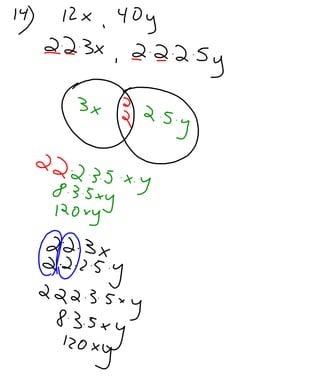 14) 12x, 40y
2·2·3x, 2·2·2·5y
3x 2 2 2·5·y
2·2·2·3·5·x·y
8·3·5xy
120xy
2·2·3x
2·2·2·5·y
2·2·2·3·5xy
8·3·5xy
120xy